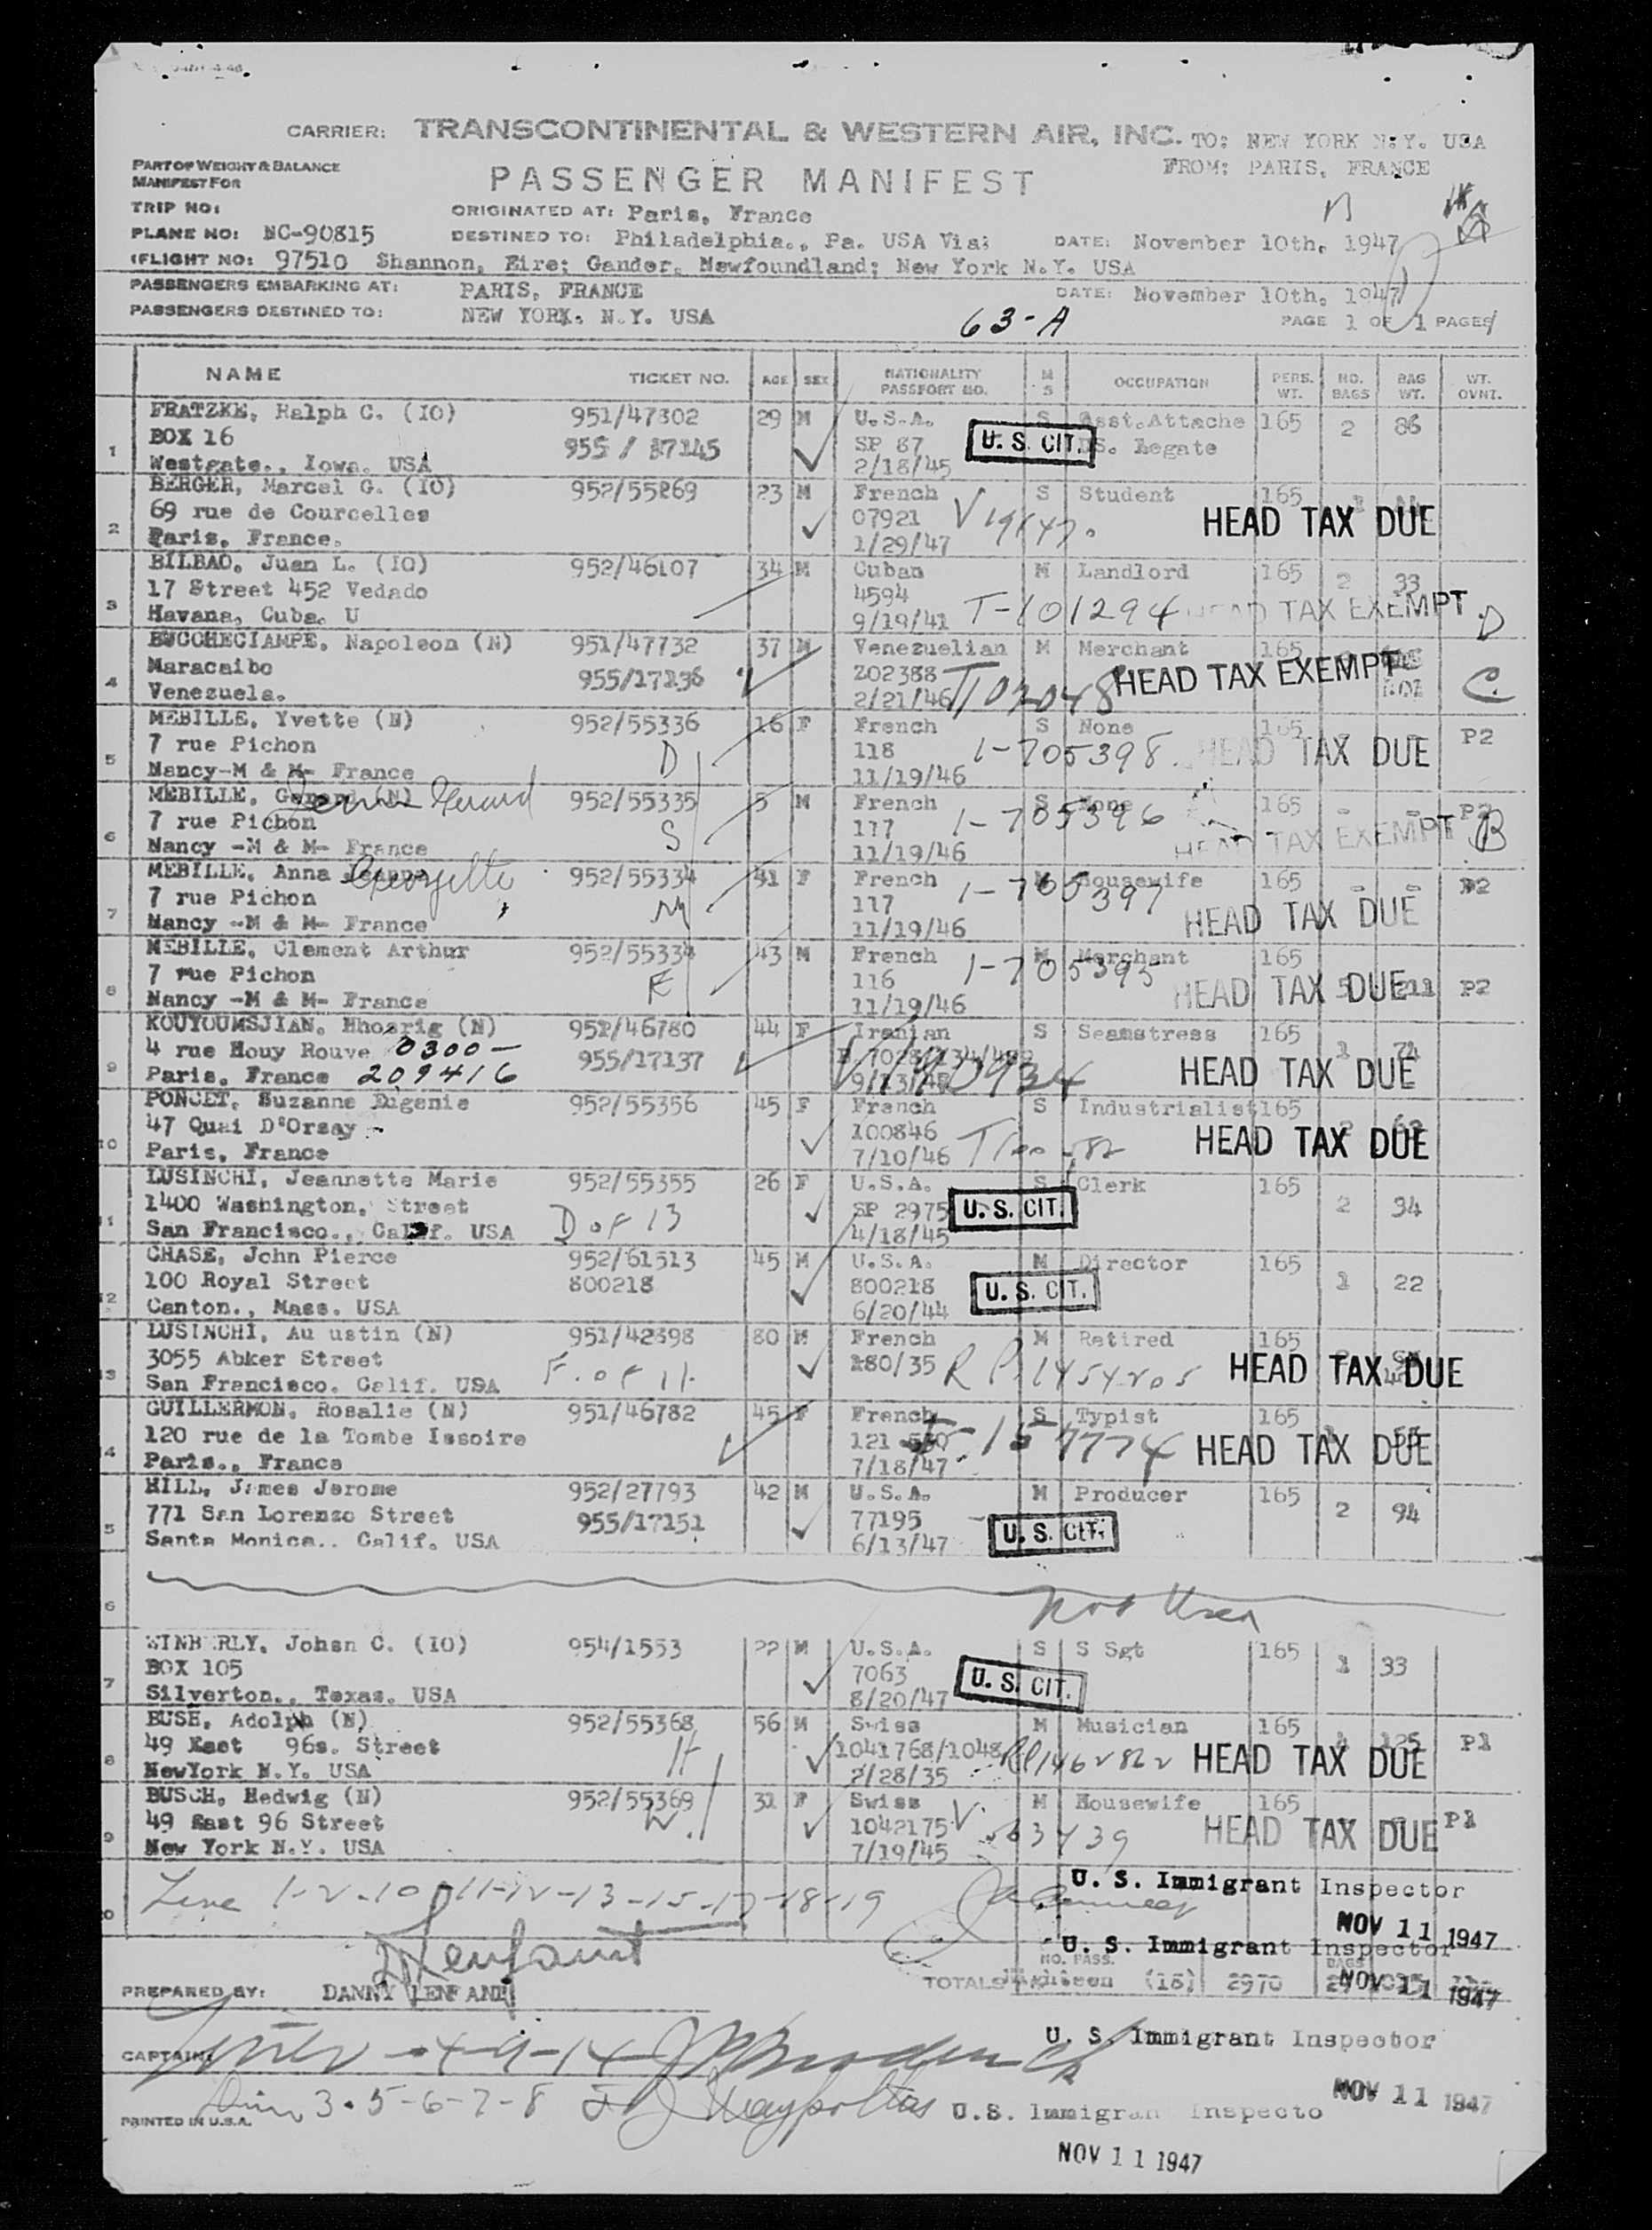 CARRIER: TRANSCONTINENTAL & WESTERN AIR, INC. TO: NEW YORK N.Y. USA
PART OF WEIGHT & BALANCE FROM: PARIS, FRANCE
MANIFEST FOR PASSENGER MANIFEST
TRIP NO: ORIGINATED AT: Paris, France
PLANE NO: NC-90815 DESTINED TO: Philadelphia., Pa. USA Via: DATE: November 10th, 1947
FLIGHT NO: 97510 Shannon, Eire; Gander, Newfoundland; New York N.Y. USA
PASSENGERS EMBARKING AT: PARIS, FRANCE DATE: November 10th, 1947
PASSENGERS DESTINED TO: NEW YORK. N.Y. USA 63-A PAGE 1 OF 1 PAGES
NAME TICKET NO. AGE SEX NATIONALITY PASSPORT NO. M S OCCUPATION PERS. WT. NO. BAGS BAG WT. WT. OVNT.
FRATZKE, Ralph C. (IO) 951/47302 29 M U.S.A. S Asst.Attache 165 2 86
BOX 16 955 / 87145 SP 87 U. S. CIT. Legate
1 Westgate., Iowa. USA 2/18/45
BERGER, Marcel G. (IO) 952/55269 23 M French S Student 165
69 rue de Courcelles 07921 HEAD TAX DUE
2 Paris, France. 1/29/47
BILBAO, Juan L. (IO) 952/46107 34 M Cuban M Landlord 165 2 33
17 Street 452 Vedado 4594 T-101294 HEAD TAX EXEMPT
3 Havana, Cuba. U 9/19/41 D
Napoleon (N) 951/47732 37 M Venezuelian M Merchant 165
Maracaibo 955/17136 202388 HEAD TAX EXEMPT
4 Venezuela. 2/21/46 C
MEBILLE, Yvette (N) 952/55336 16 F French S None 165 P2
7 rue Pichon D 118 1-705398 HEAD TAX DUE
5 Nancy-M & M- France 11/19/46
MEBILLE, Gerard (N) Gerard 952/55335 5 M French S None 165 P2
7 rue Pichon 117 1-705396
6 Nancy -M & M- France S 11/19/46 HEAD TAX EXEMPT B
MEBILLE, Anna Georgette 952/55334 41 F French M Housewife 165 P2
7 rue Pichon 117 1-705397
7 Nancy -M & M- France M 11/19/46 HEAD TAX DUE
MEBILLE, Clement Arthur 952/55334 43 M French M Merchant 165
7 rue Pichon 116 1-705395 HEAD TAX DUE 211 P2
8 Nancy -M & M- France F 11/19/46
KOUYOUMSJIAN, 952/46780 44 F Iranian S Seamstress 165
4 rue Houy Rouve 0300- 955/17137 1 74
9 Paris, France 209416 HEAD TAX DUE
PONCET, Suzanne Eugenie 952/55356 45 F French S Industrialist 165
47 Quai D'Orsay 100846 HEAD TAX DUE
10 Paris, France 7/10/46
LUSINCHI, Jeannette Marie 952/55355 26 F U.S.A. S Clerk 165
1400 Washington, Street SP 2975 U. S. CIT. 2 34
11 San Francisco., Calif. USA D of 13 4/18/45
CHASE, John Pierce 952/61513 45 M U.S.A. M Director 165
100 Royal Street 800218 800218 U. S. CIT. 1 22
12 Canton., Mass. USA 6/20/44
LUSINCHI, Au ustin (N) 951/42398 80 M French M Retired 165
3055 Abker Street 280/35 HEAD TAX DUE
13 San Francisco. Calif. USA F. of 11.
GUILLERMON, Rosalie (N) 951/46782 45 F French S Typist 165
120 rue de la Tombe Issoire 121 HEAD TAX DUE
14 Paris., France 7/18/47
HILL, James Jerome 952/27793 42 M U.S.A. M Producer 165
771 San Lorenzo Street 955/17151 77195 2 94
5 Santa Monica.. Calif. USA 6/13/47 U. S. CIT.
6 not Used
Johan C. (IO) 954/1553 22 M U.S.A. S S Sgt 165
BOX 105 7063 U. S. CIT. 1 33
7 Silverton., Texas. USA 8/20/47
BUSH, Adolph (N) 952/55368 56 M Swiss M Musician 165 P1
49 East 96s. Street H 1041768/1048 HEAD TAX DUE
8 NewYork N.Y. USA 2/28/35
BUSCH, Hedwig (N) 952/55369 31 F Swiss M Housewife 165 P1
49 East 96 Street W. 1042175 HEAD TAX DUE
9 New York N.Y. USA 7/19/45
Line 1-2-10-11-12-13-15-17-18-19 U. S. Immigrant Inspector
NOV 11 1947
Lenfant U. S. Immigrant Inspector
PREPARED BY: DANNY LENFANT TOTALS NO. PASS. Eighteen (18) 2970 BAGS NOV 11 1947
U. S. Immigrant Inspector
CAPTAIN: 4-9-14
NOV 11 1947
3-5-6-7-8
PRINTED IN U.S.A. U.S. Immigran Inspecto
NOV 11 1947